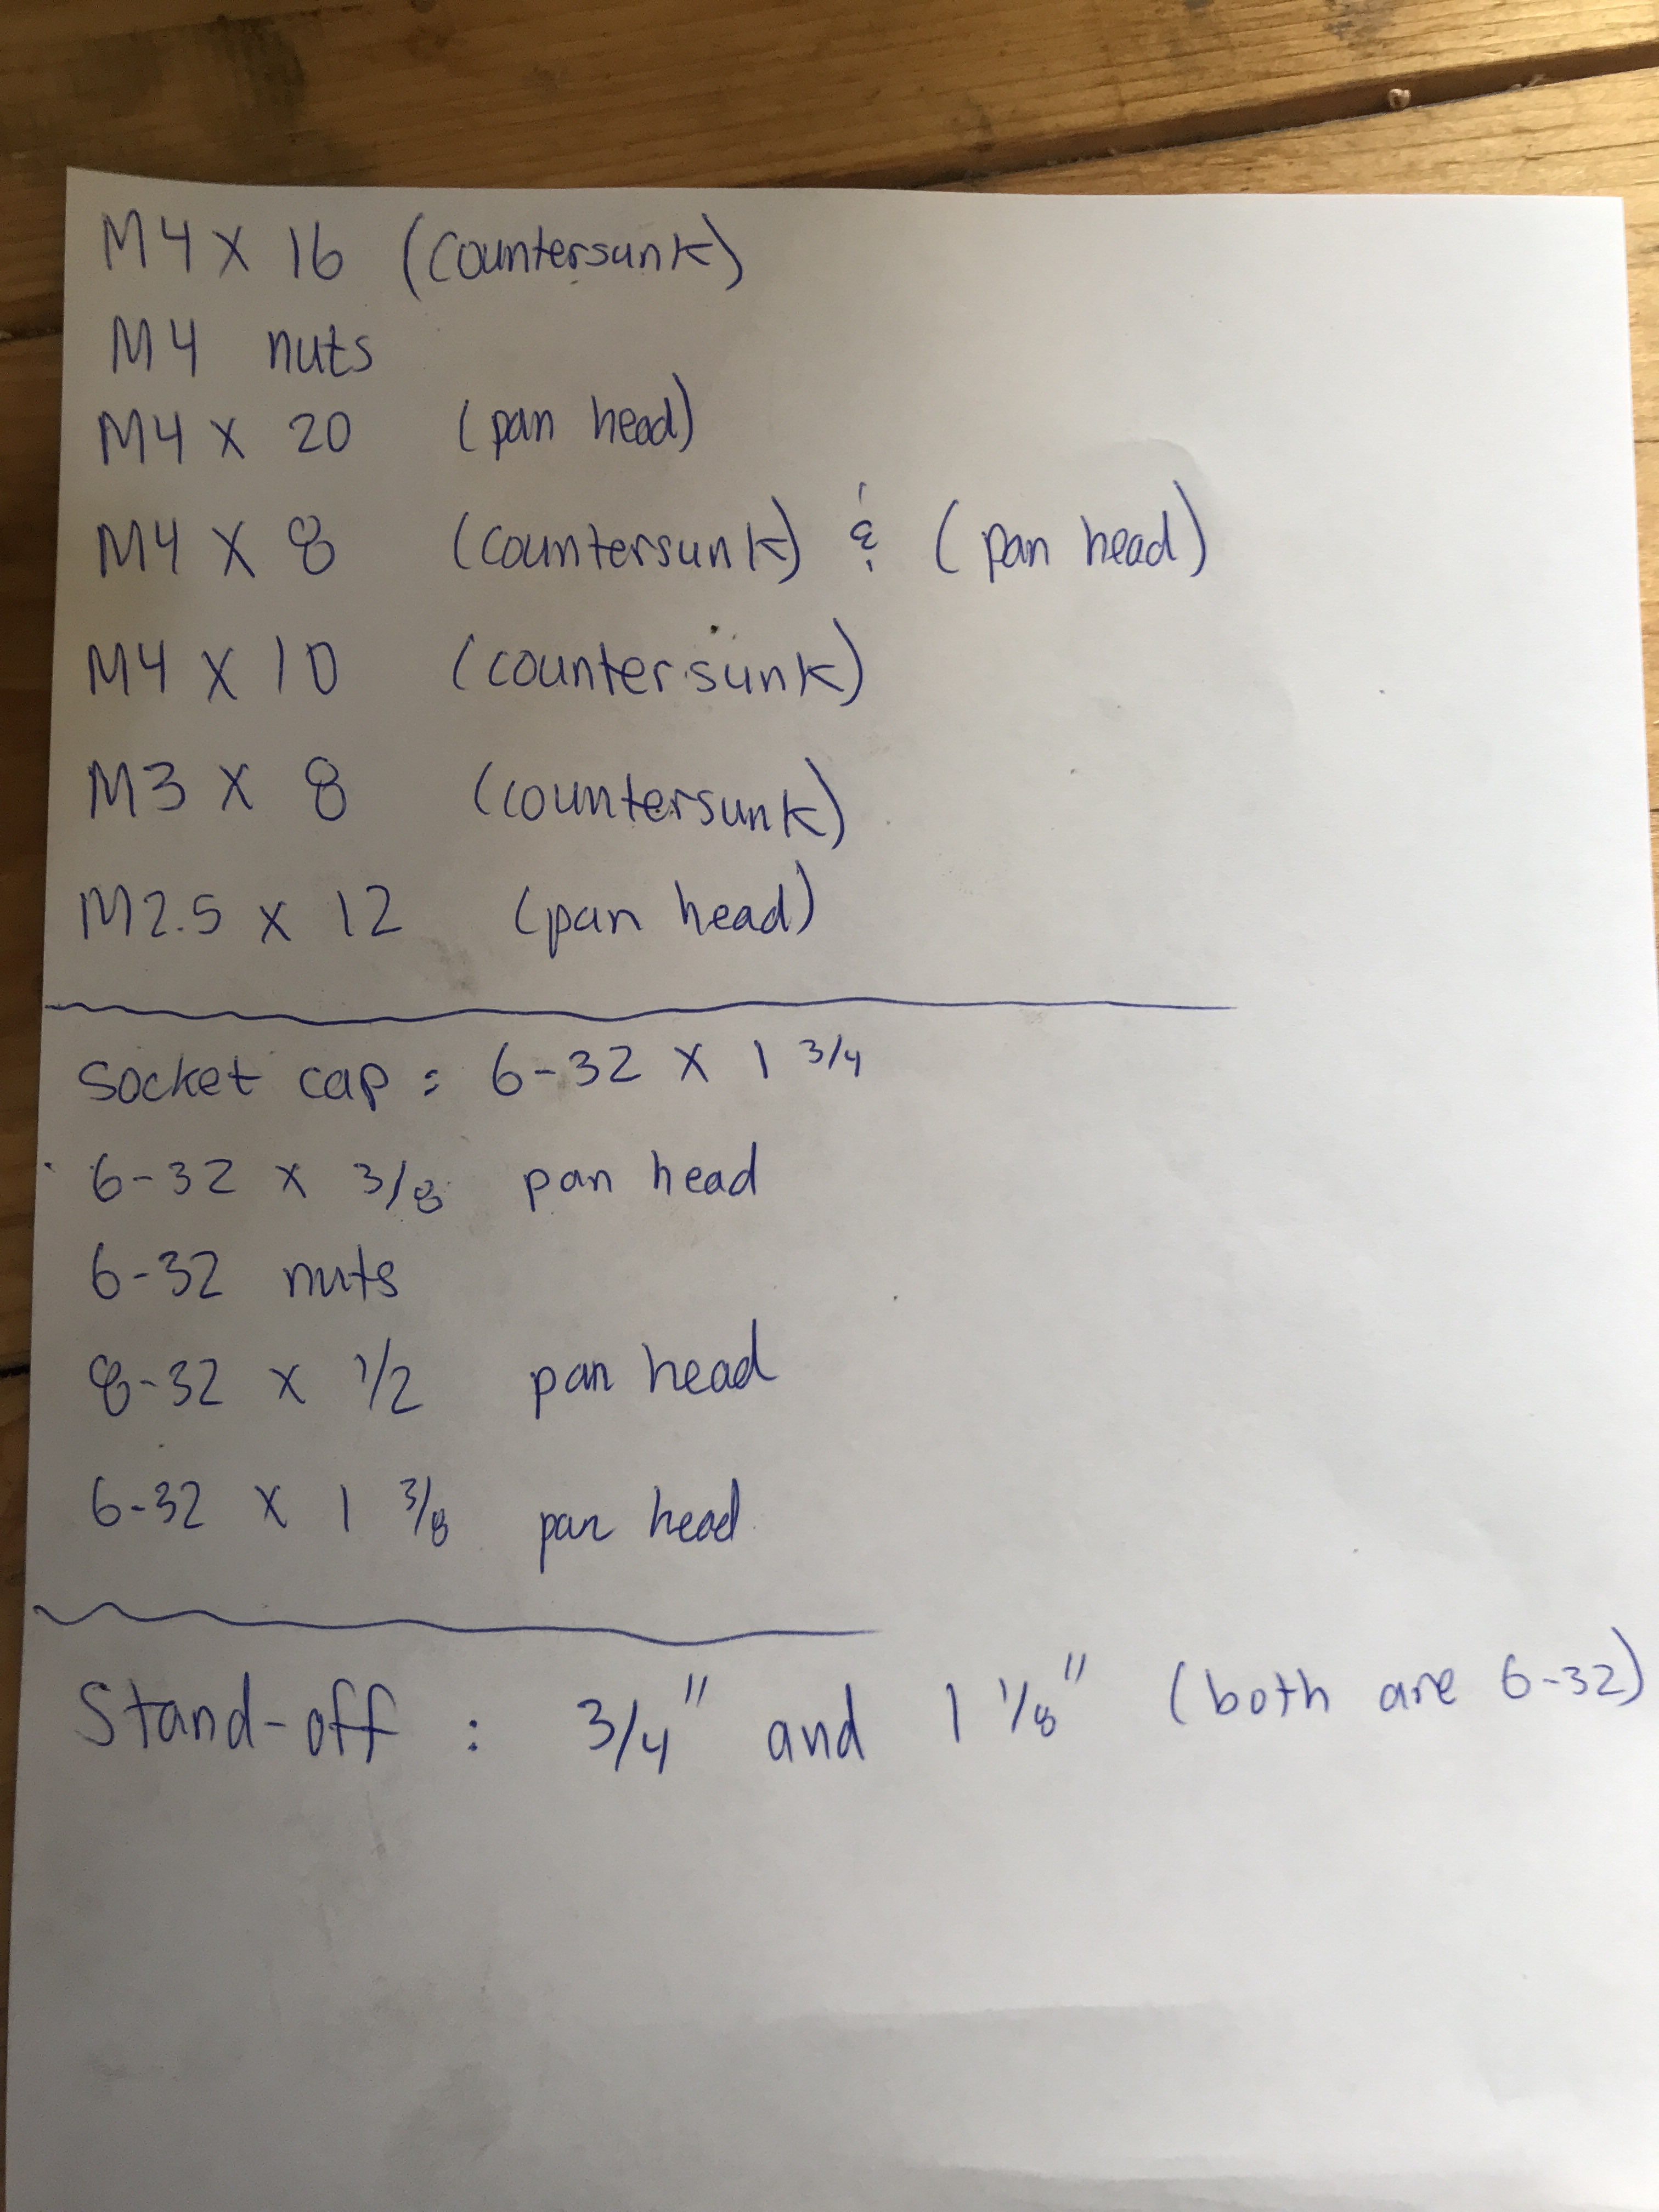 M4 X 16 (countersunk)
M4 nuts
M4 X 20 (pan head)
M4 X 8 (countersunk) & (pan head)
M4 X 10 (countersunk)
M3 X 8 (countersunk)
M2.5 X 12 (pan head)
Socket cap: 6-32 X 1 3/4
6-32 X 3/8 pan head
6-32 nuts
8-32 X 1/2 pan head
6-32 X 1 3/8 pan head
Stand-off : 3/4" and 1 1/8" (both are 6-32)